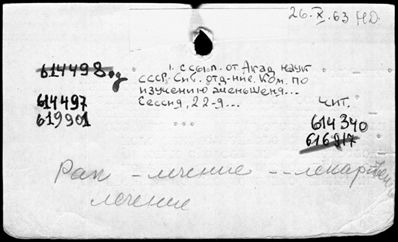 26.X.63 НО.
614498
1. ссып. от Акад наук
СССР, Сиб. отд-ние. Ком. по
изучению женьшеня...
614497
Сессия, 22-я...
Чит.
619901
614340
616917
Рак - лечение -- лекарствен
лечение